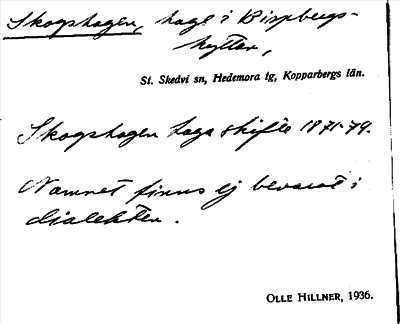 Skogshagen, hage i Bispbergs-
hyttan,
St. Skedvi sn, Hedemora tg, Kopparbergs län.
Skogshagen laga skifte 1871-79.
Namnet finns ej bevarat i
dialekten.
OLLE HILLNER, 1936.